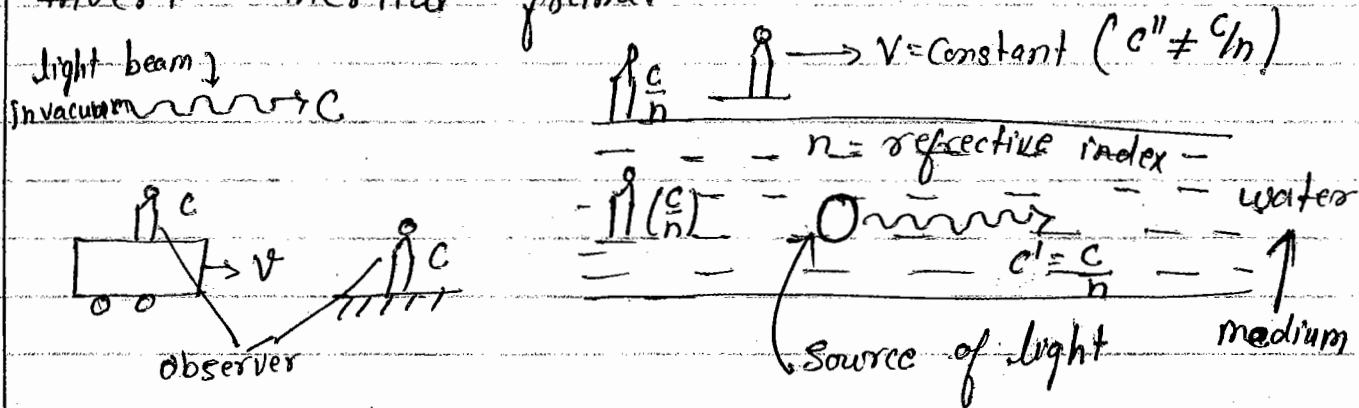 light beam
in vacuum → C
C
→ V
C
observer
→ V = Constant (c'' ≠ c/n)
c/n
n = refrective index
(c/n)
water
c' = c/n
Source of light
medium